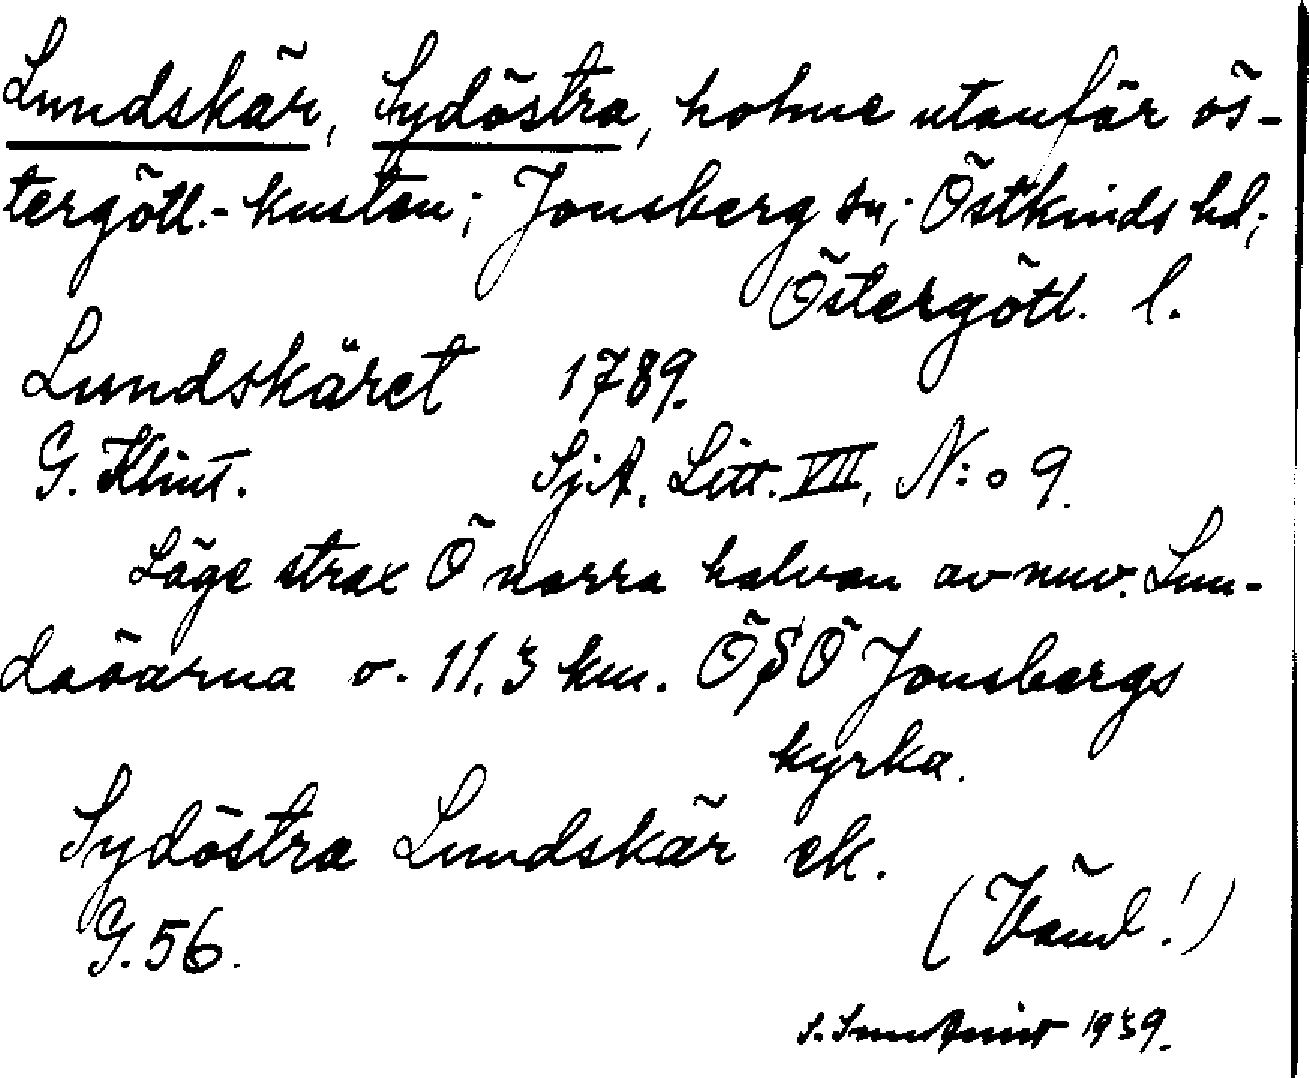 Lundskär, Sydöstra, holme utanför ös-
tergötl.-kusten; Jonsberg sn; Östkinds hd;
Östergötl. l.
Lundskäret 1789.
G. Klint. SjA. Litt. VII, N:o 9.
Läge strax Ö norra halvan av nuv. Lun-
daöarna o. 11,3 km. ÖSÖ Jonsbergs
kyrka.
Sydöstra Lundskär ek.
G. 56.
(Vänd!)
1939.